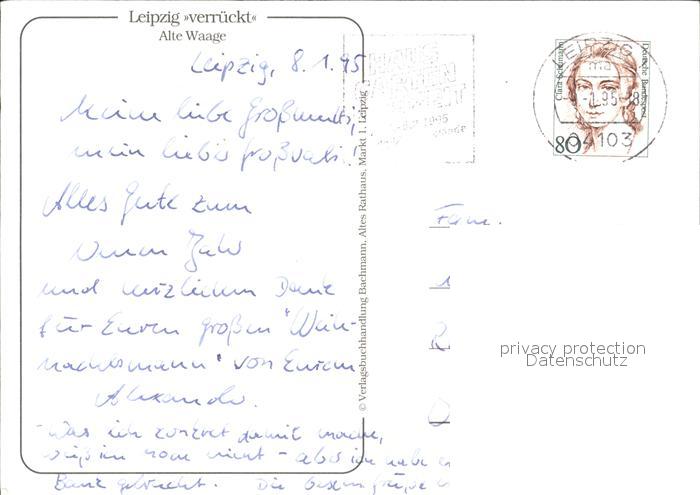 Leipzig »verrückt«
Alte Waage
Leipzig, 8.1.95
Meine liebe Großmutti,
mein liebster Großvati!
Alles Gute zum
Neuen Jahr
und herzlichen Dank
für Euren großen "Weih-
nachtsmann" von Eurem
Alexander.
- Was ich zuerst damit mache,
weiß ich noch nicht - aber ich habe es
Bank gebracht. Die
© Verlagsbuchhandlung Bachmann, Altes Rathaus, Markt 1, Leipzig
LEIPZIG
04103
Clara Schumann
Deutsche Bundespost
80
1995
Fam.
privacy protection
Datenschutz